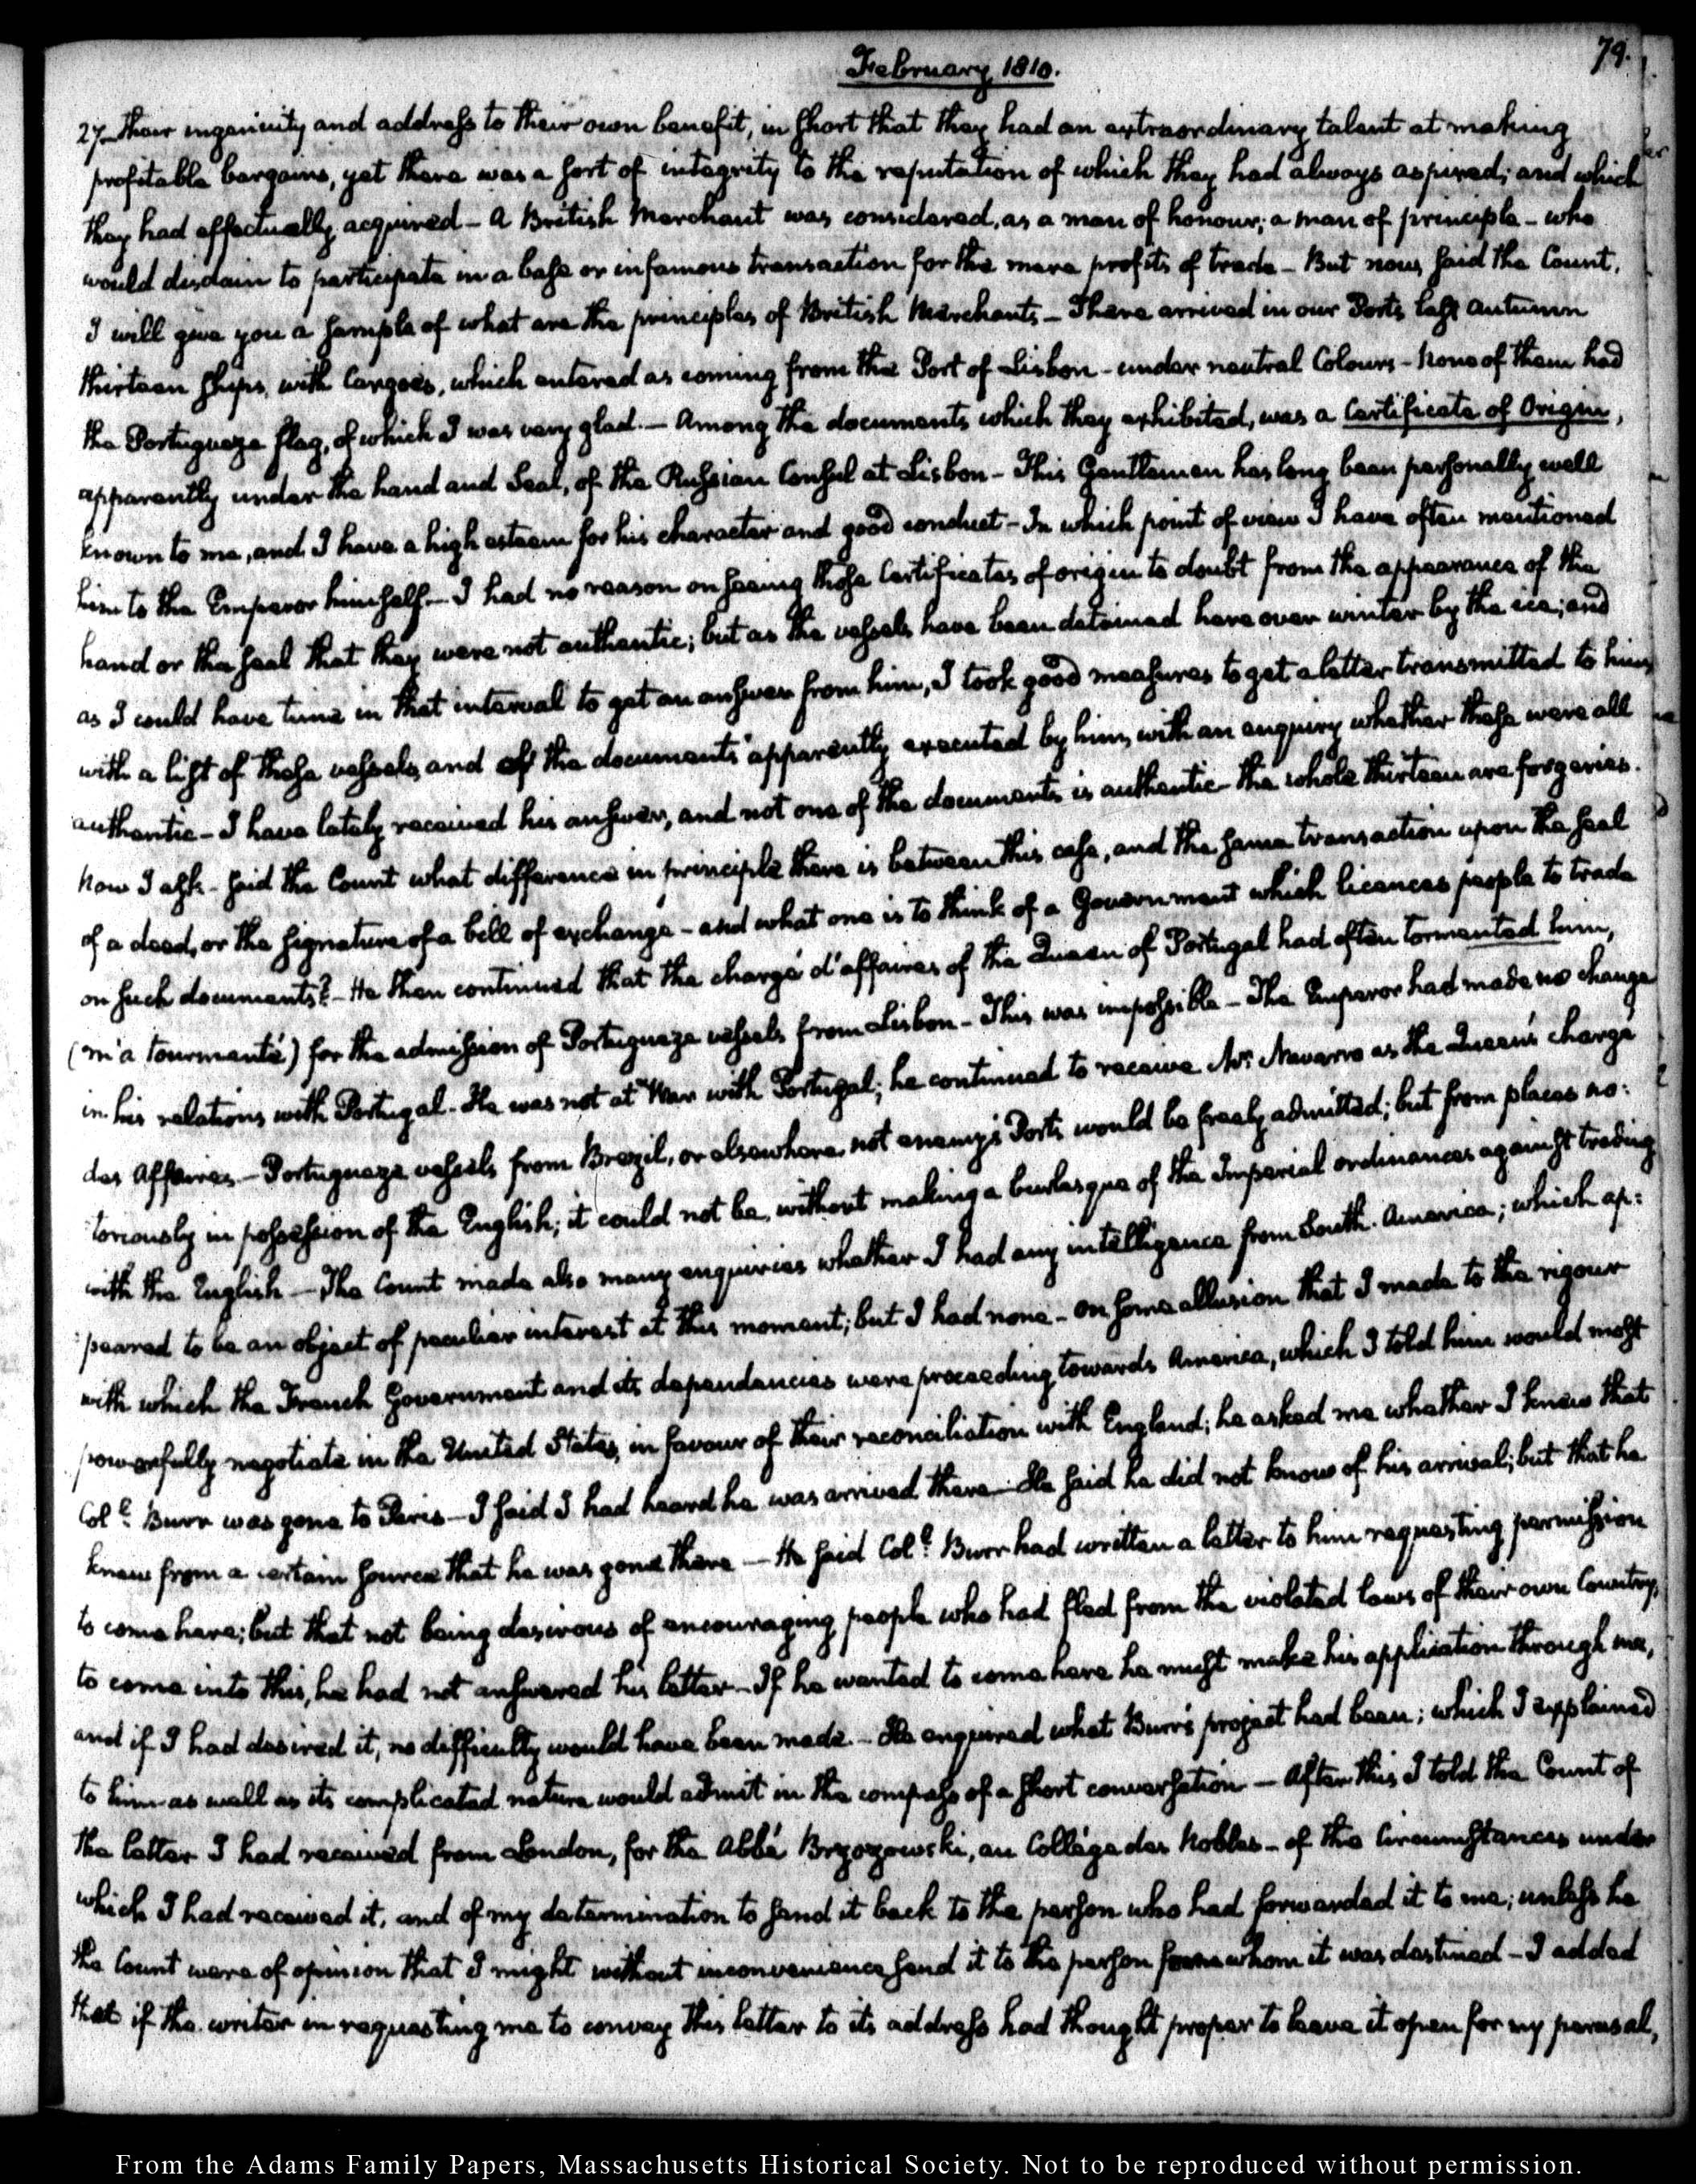 February 1810.
79.
27. their ingenuity and address to their own benefit, in short that they had an extraordinary talent at making
profitable bargains, yet there was a sort of integrity to the reputation of which they had always aspired; and which
they had effectually acquired – A British Merchant was considered, as a man of honour; a man of principle – who
would disdain to participate in a base or infamous transaction for the mere profits of trade – But now, said the Count,
I will give you a sample of what are the principles of British Merchants – There arrived in our Ports last Autumn
thirteen ships, with Cargoes, which entered as coming from the Port of Lisbon – under neutral Colours – None of them had
the Portugueze flag, of which I was very glad. – Among the documents which they exhibited, was a Certificate of Origin,
apparently under the hand and Seal, of the Russian Consul at Lisbon – This Gentleman has long been personally well
known to me, and I have a high esteem for his character and good conduct – In which point of view I have often mentioned
him to the Emperor himself. – I had no reason on seeing those Certificates of origin to doubt from the appearance of the
hand or the seal that they were not authentic; but as the vessels have been detained here over winter by the ice; and
as I could have time in that interval to get an answer from him, I took good measures to get a letter transmitted to him,
with a list of these vessels, and of the documents apparently executed by him, with an enquiry whether these were all
authentic – I have lately received his answer, and not one of the documents is authentic – the whole thirteen are forgeries.
Now I ask – said the Count what difference in principle there is between this case, and the same transaction upon the seal
of a deed, or the signature of a bill of exchange – and what one is to think of a Government which licences people to trade
on such documents? – He then continued that the chargé d'affaires of the Queen of Portugal had often tormented him,
(m'a tourmenté) for the admission of Portugueze vessels from Lisbon – This was impossible – The Emperor had made no change
in his relations with Portugal. He was not at War with Portugal; he continued to receive Mr. Navarro as the Queen's chargé
des Affaires – Portugueze vessels from Brazil, or elsewhere not enemy's Ports would be freely admitted; but from places no:
:toriously in possession of the English; it could not be, without making a burlesque of the Imperial ordinances against trading
with the English – The Count made also many enquiries whether I had any intelligence from South-America; which ap:
:peared to be an object of peculiar interest at this moment; but I had none – On some allusion that I made to the rigour
with which the French Government and its dependancies were proceeding towards America, which I told him would most
powerfully negotiate in the United States, in favour of their reconciliation with England; he asked me whether I knew that
Coll. Burr was gone to Paris – I said I had heard he was arrived there – He said he did not know of his arrival; but that he
knew from a certain source that he was gone there – He said Coll. Burr had written a letter to him requesting permission
to come here; but that not being desirous of encouraging people who had fled from the violated laws of their own Country,
to come into this, he had not answered his letter – If he wanted to come here he must make his application through me,
and if I had desired it, no difficulty would have been made. – He enquired what Burr's project had been; which I explained
to him as well as its complicated nature would admit in the compass of a short conversation – After this I told the Count of
the letter I had received from London, for the Abbé Brzozowski, au Collége des Nobles – of the Circumstances under
which I had received it, and of my determination to send it back to the person who had forwarded it to me; unless he
the Count were of opinion that I might without inconvenience send it to the person whom it was destined – I added
that if the writer in requesting me to convey this letter to its address had thought proper to leave it open for my perusal,
From the Adams Family Papers, Massachusetts Historical Society. Not to be reproduced without permission.